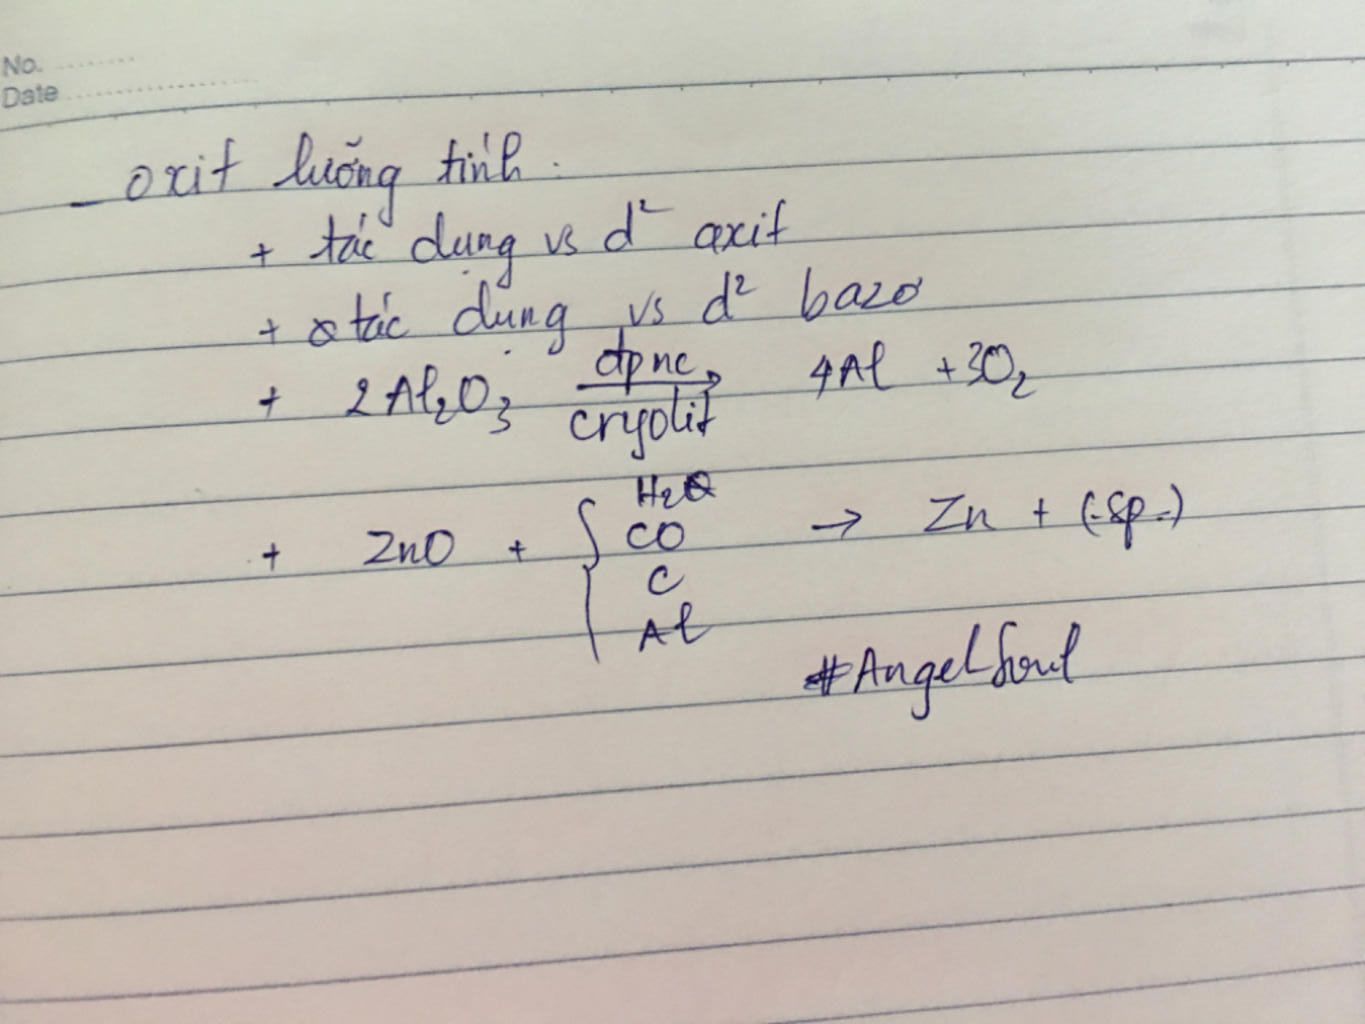 No.
Date
_ oxit lưỡng tính :
+ tác dụng vs d² axit
+ tác dụng vs d² bazơ
+ 2Al₂O₃ đpnc → cryolit 4Al + 3O₂
+ ZnO + { H₂ CO C Al → Zn + (.sp.)
#AngelSoul